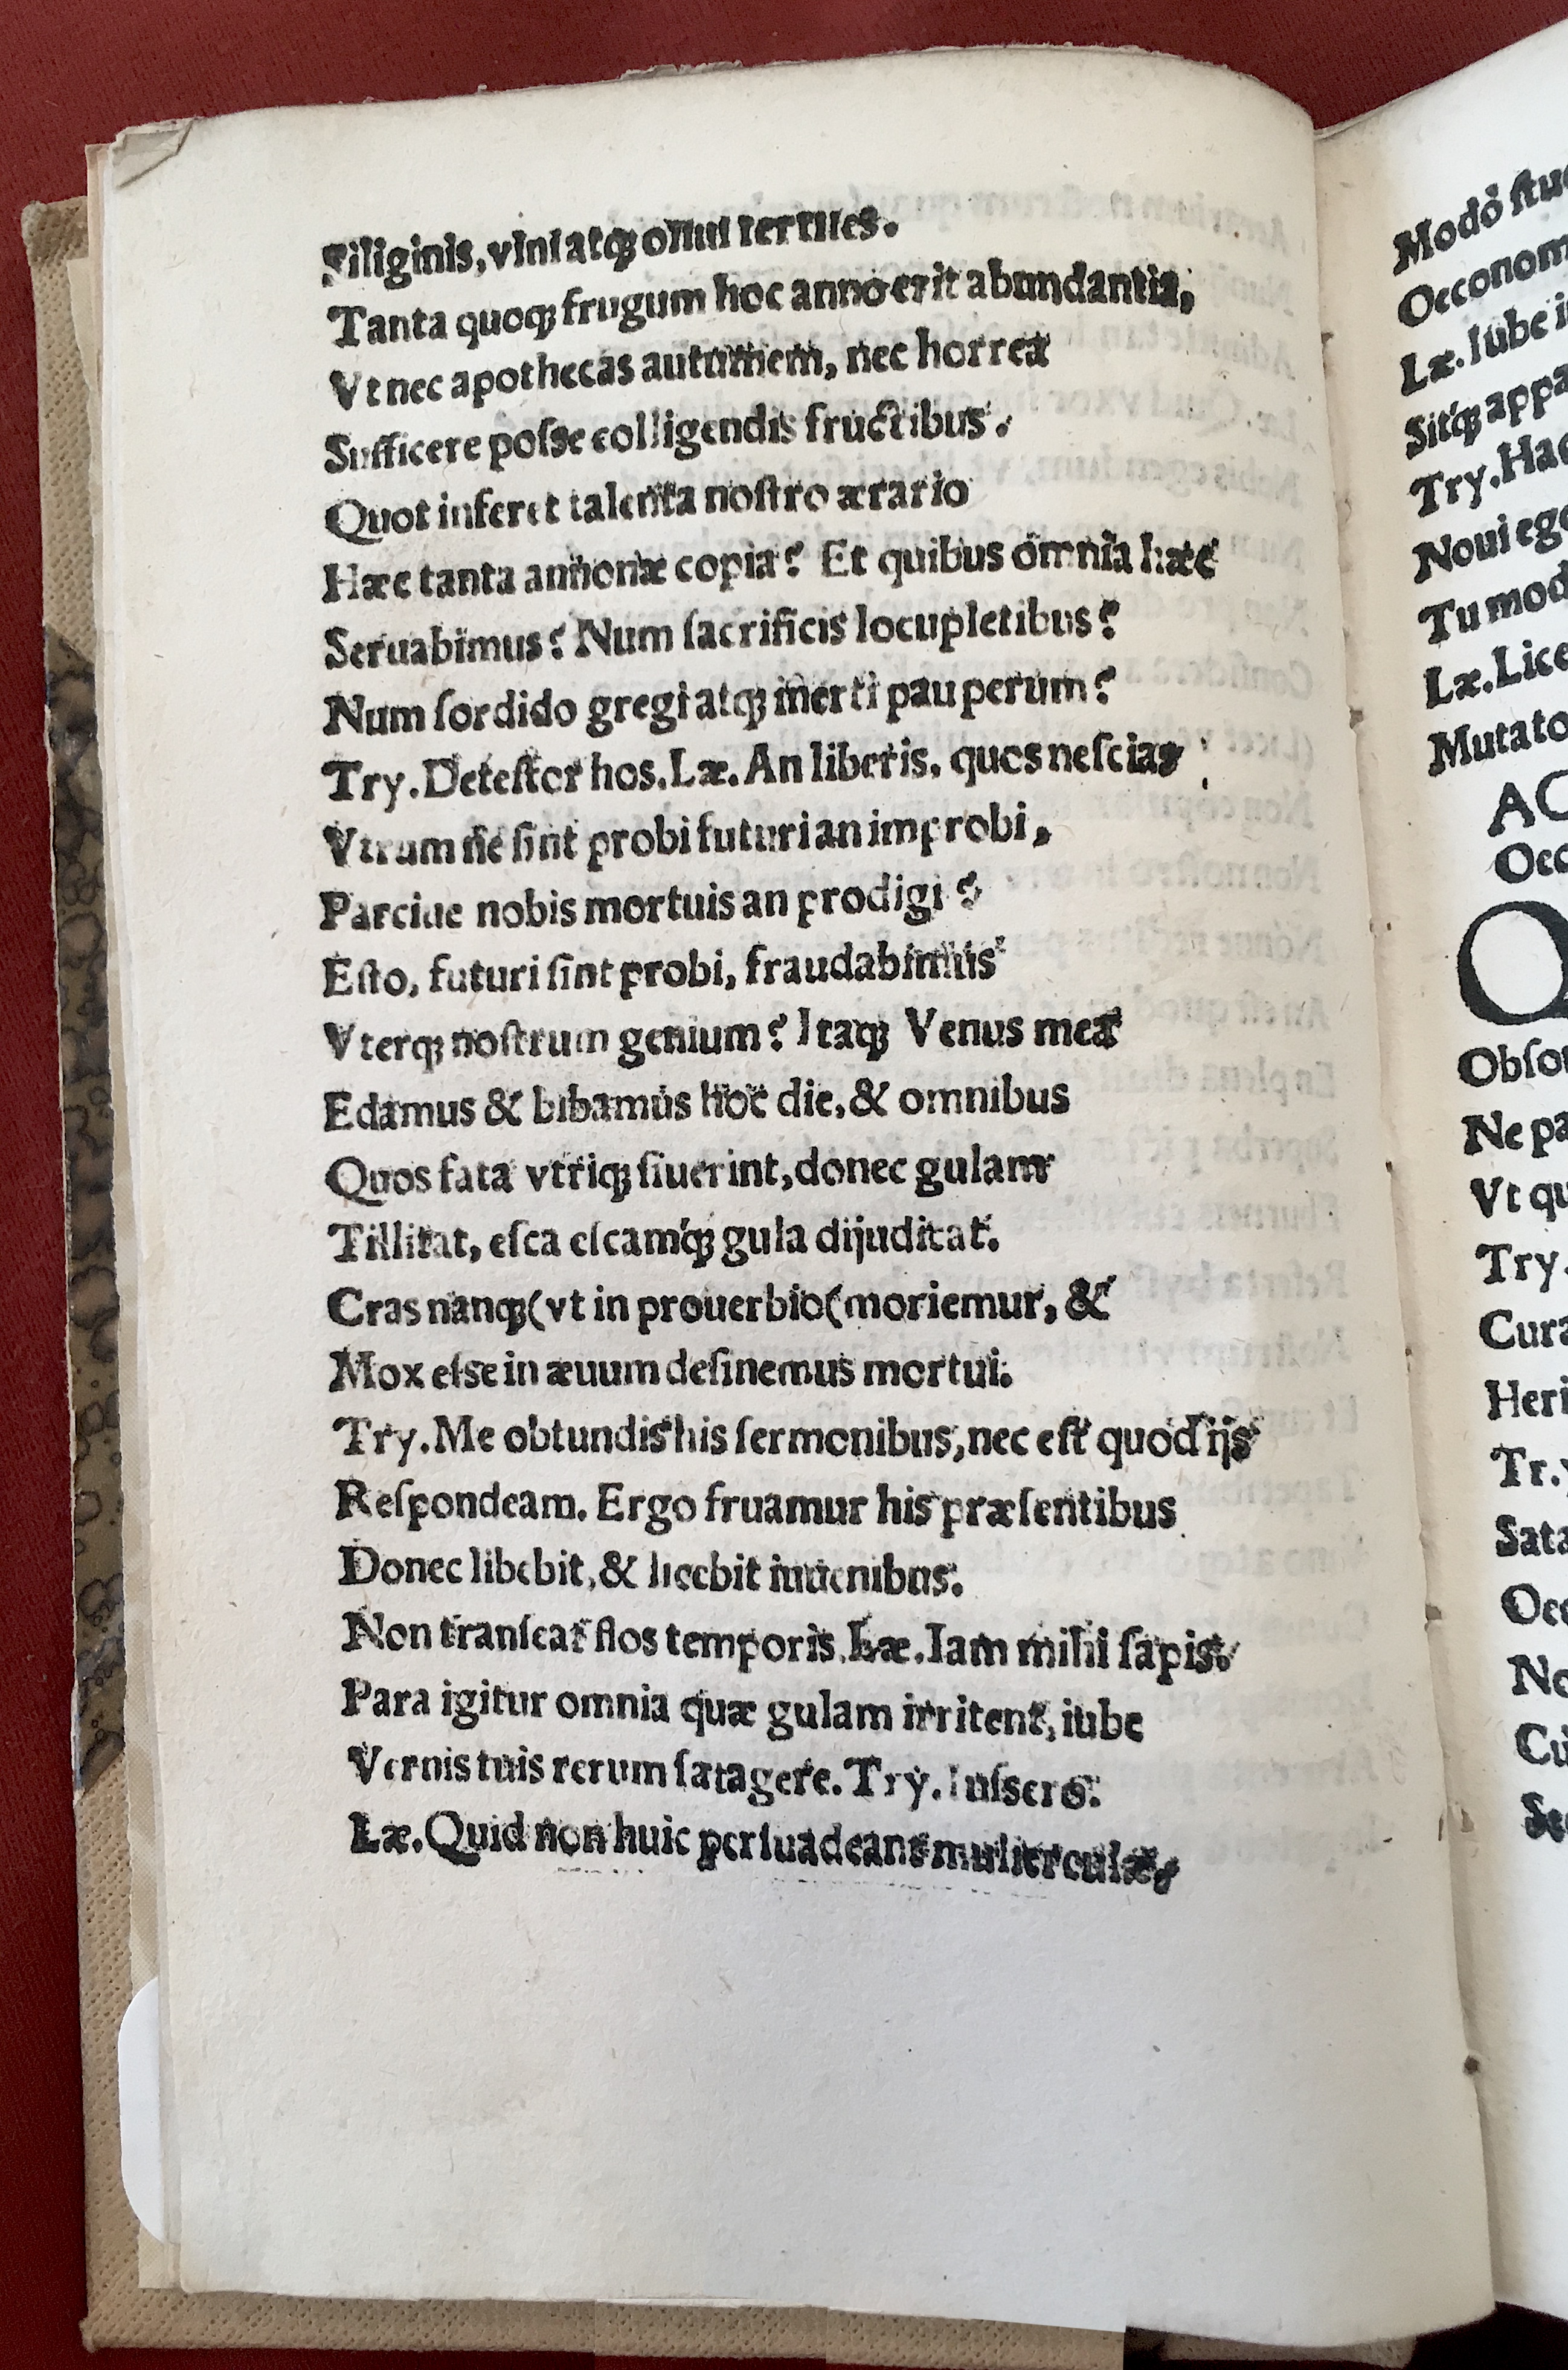 Siliginis, vini atq́ʒ omni fertiles.
Tanta quoqʒ frugum hoc anno erit abundantia,
Vt nec apothecas autumem, nec horrea
Sufficere poſse colligendis fructibus.
Quot inferet talenta noſtro ærario
Hæc tanta annonæ copia? Et quibus omnia hæc
Seruabimus? Num ſacrificis locupletibus?
Num ſordido gregi atqʒ inerti pauperum?
Try. Deteſtor hos. Læ. An liberis, quos neſcias
Vtrum ne ſint probi futuri an improbi,
Parciue nobis mortuis an prodigi?
Eſto, futuri ſint probi, fraudabimus
Vterqʒ noſtrum genium? Itaqʒ Venus mea
Edamus & bibamus hoc die, & omnibus
Quos fata vtriqʒ ſiuerint, donec gulam
Tillitat, eſca eſcamq́ʒ gula dijudicat.
Cras nanqʒ (vt in prouerbio( moriemur, &
Mox eſse in æuum deſinemus mortui.
Try. Me obtundis his ſermonibus, nec eſt quod ijs
Reſpondeam. Ergo fruamur his præſentibus
Donec libebit, & licebit iuuenibus.
Non tranſeat flos temporis. Læ. Iam mihi ſapis.
Para igitur omnia quæ gulam irritent, iube
Vernis tuis rerum ſatagere. Try. Iuſsero.
Læ. Quid non huic perſuadeant mulierculæ,
Modò
Læ. Iube
Sitq́ʒ
Try.
Noui
Tu
Læ.
Ne
Vt
Try.